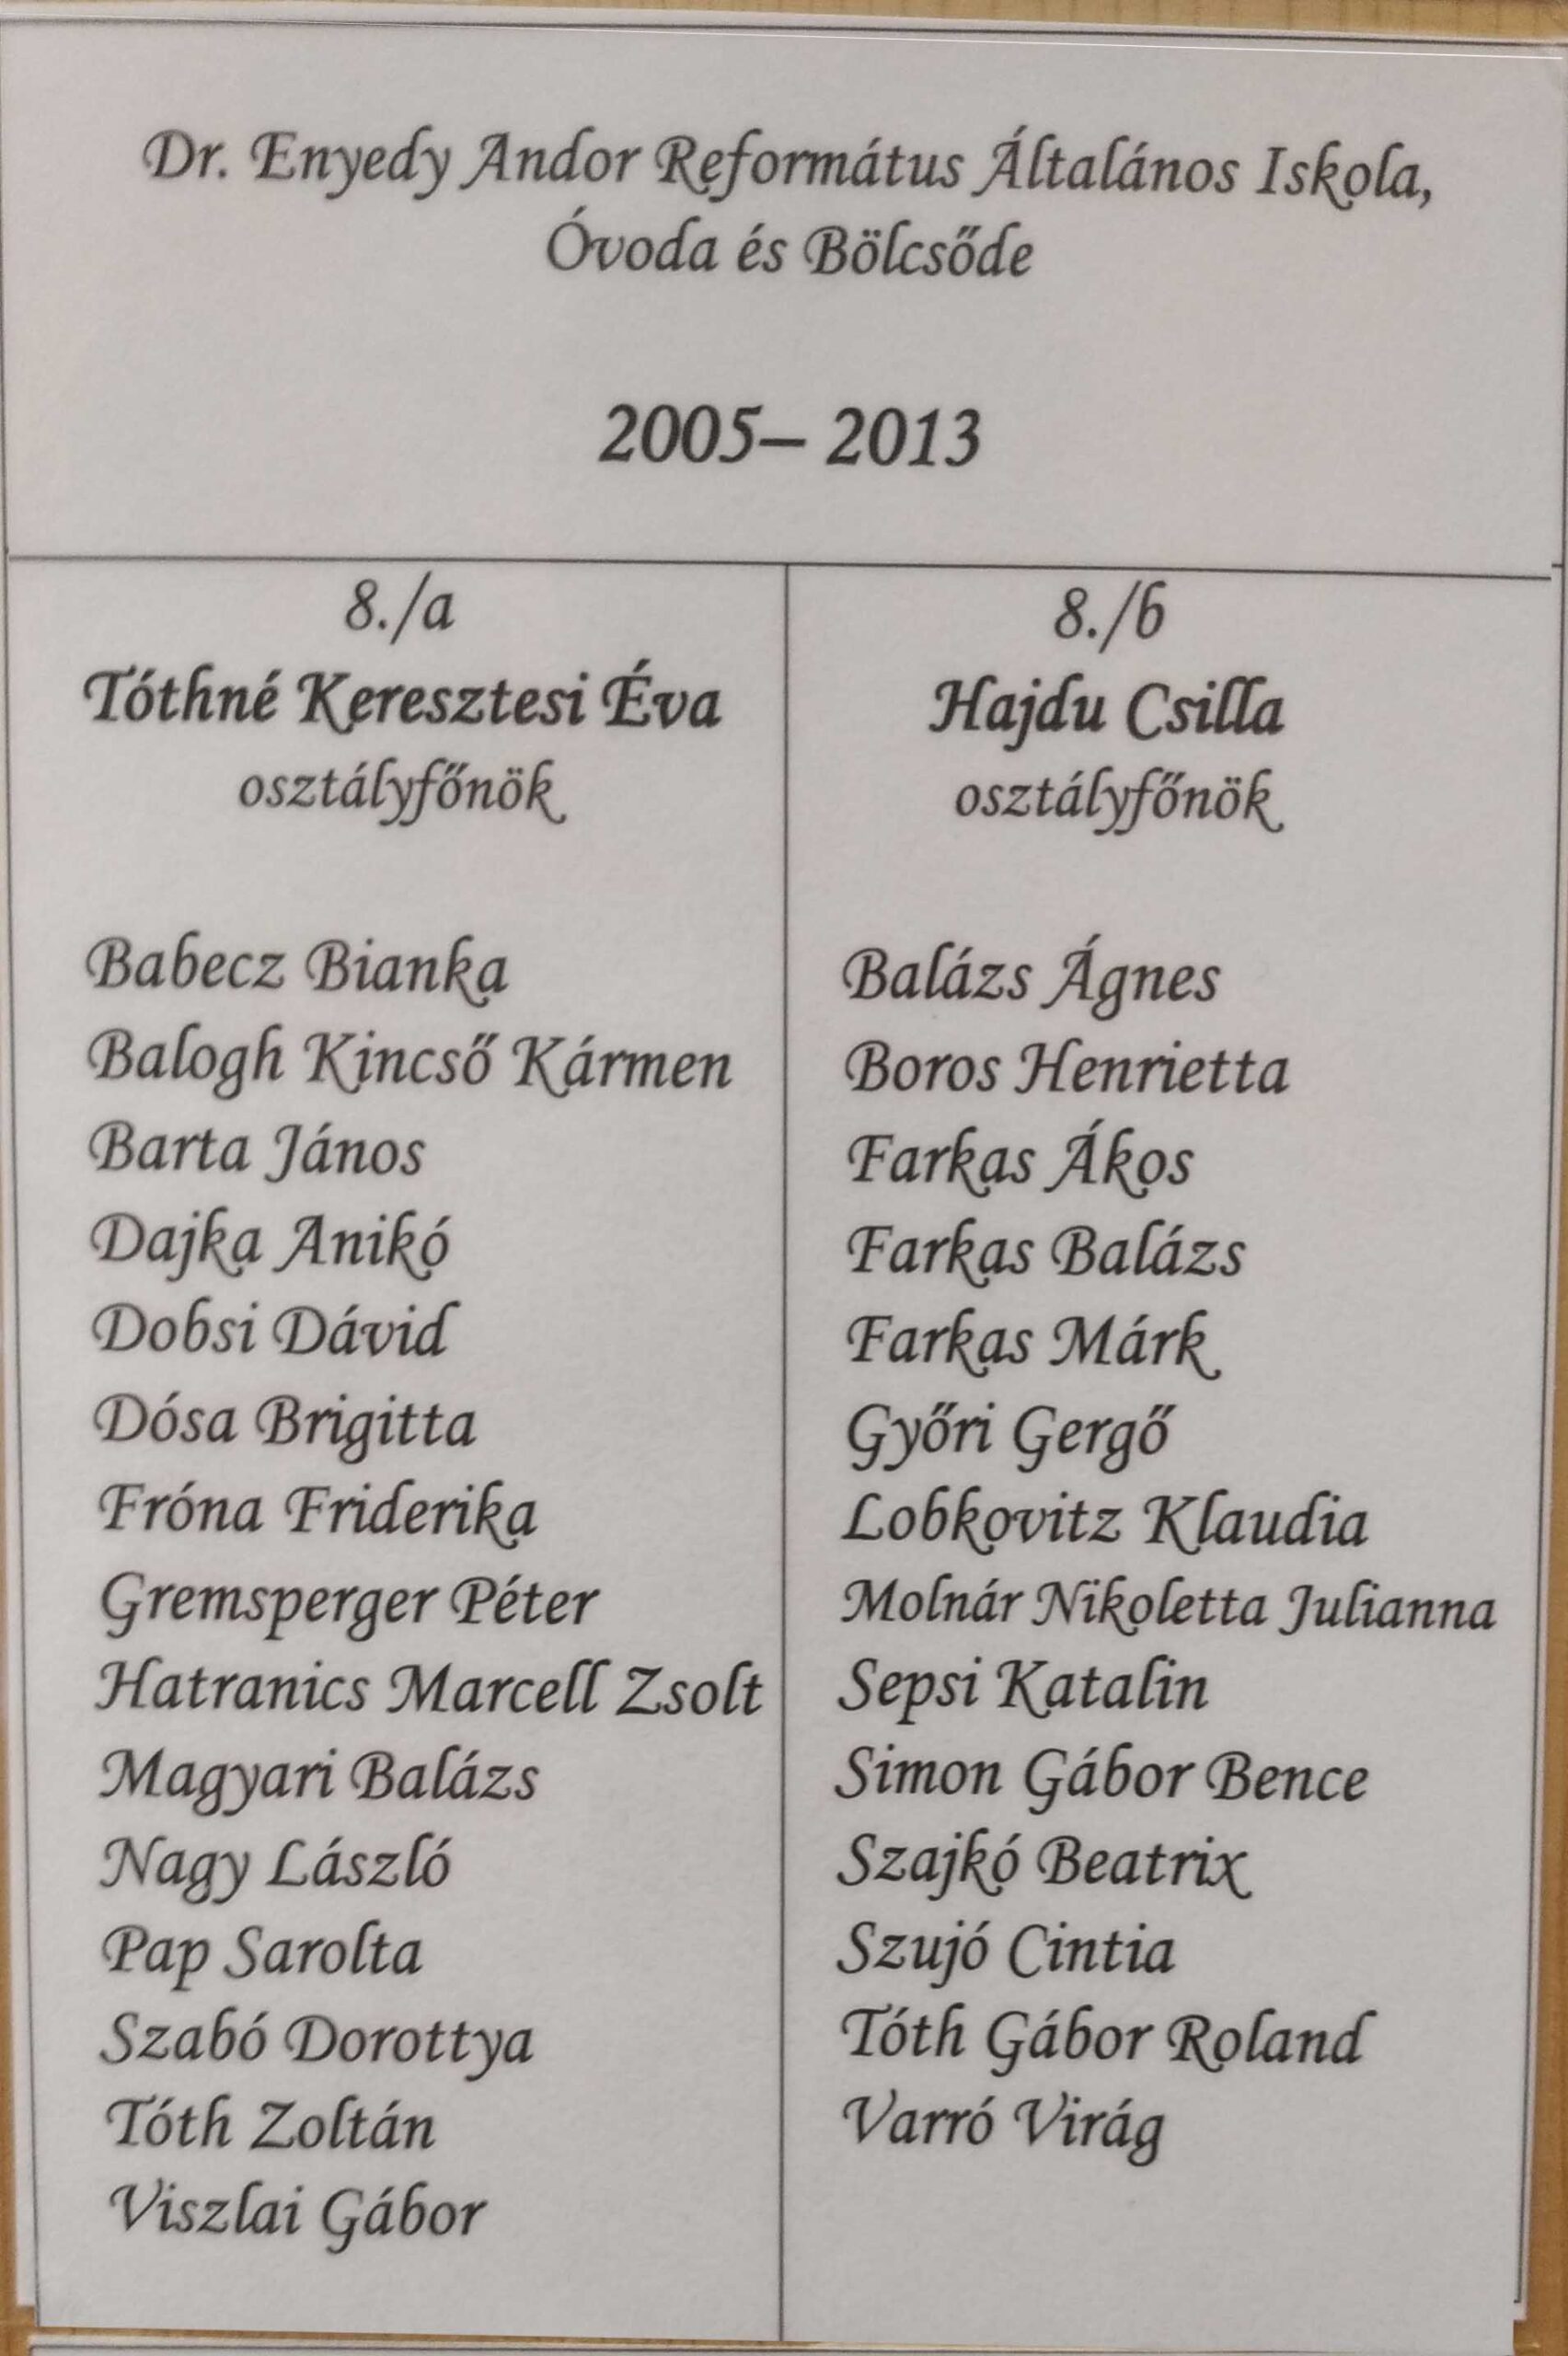 Dr. Enyedy Andor Református Általános Iskola,
Óvoda és Bölcsőde
2005– 2013
8./a
Tóthné Keresztesi Éva
osztályfőnök
Babecz Bianka
Balogh Kincső Kármen
Barta János
Dajka Anikó
Dobsi Dávid
Dósa Brigitta
Fróna Friderika
Gremsperger Péter
Hatranics Marcell Zsolt
Magyari Balázs
Nagy László
Pap Sarolta
Szabó Dorottya
Tóth Zoltán
Viszlai Gábor
8./b
Hajdu Csilla
osztályfőnök
Balázs Ágnes
Boros Henrietta
Farkas Ákos
Farkas Balázs
Farkas Márk
Győri Gergő
Lobkovitz Klaudia
Molnár Nikoletta Julianna
Sepsi Katalin
Simon Gábor Bence
Szajkó Beatrix
Szujó Cintia
Tóth Gábor Roland
Varró Virág